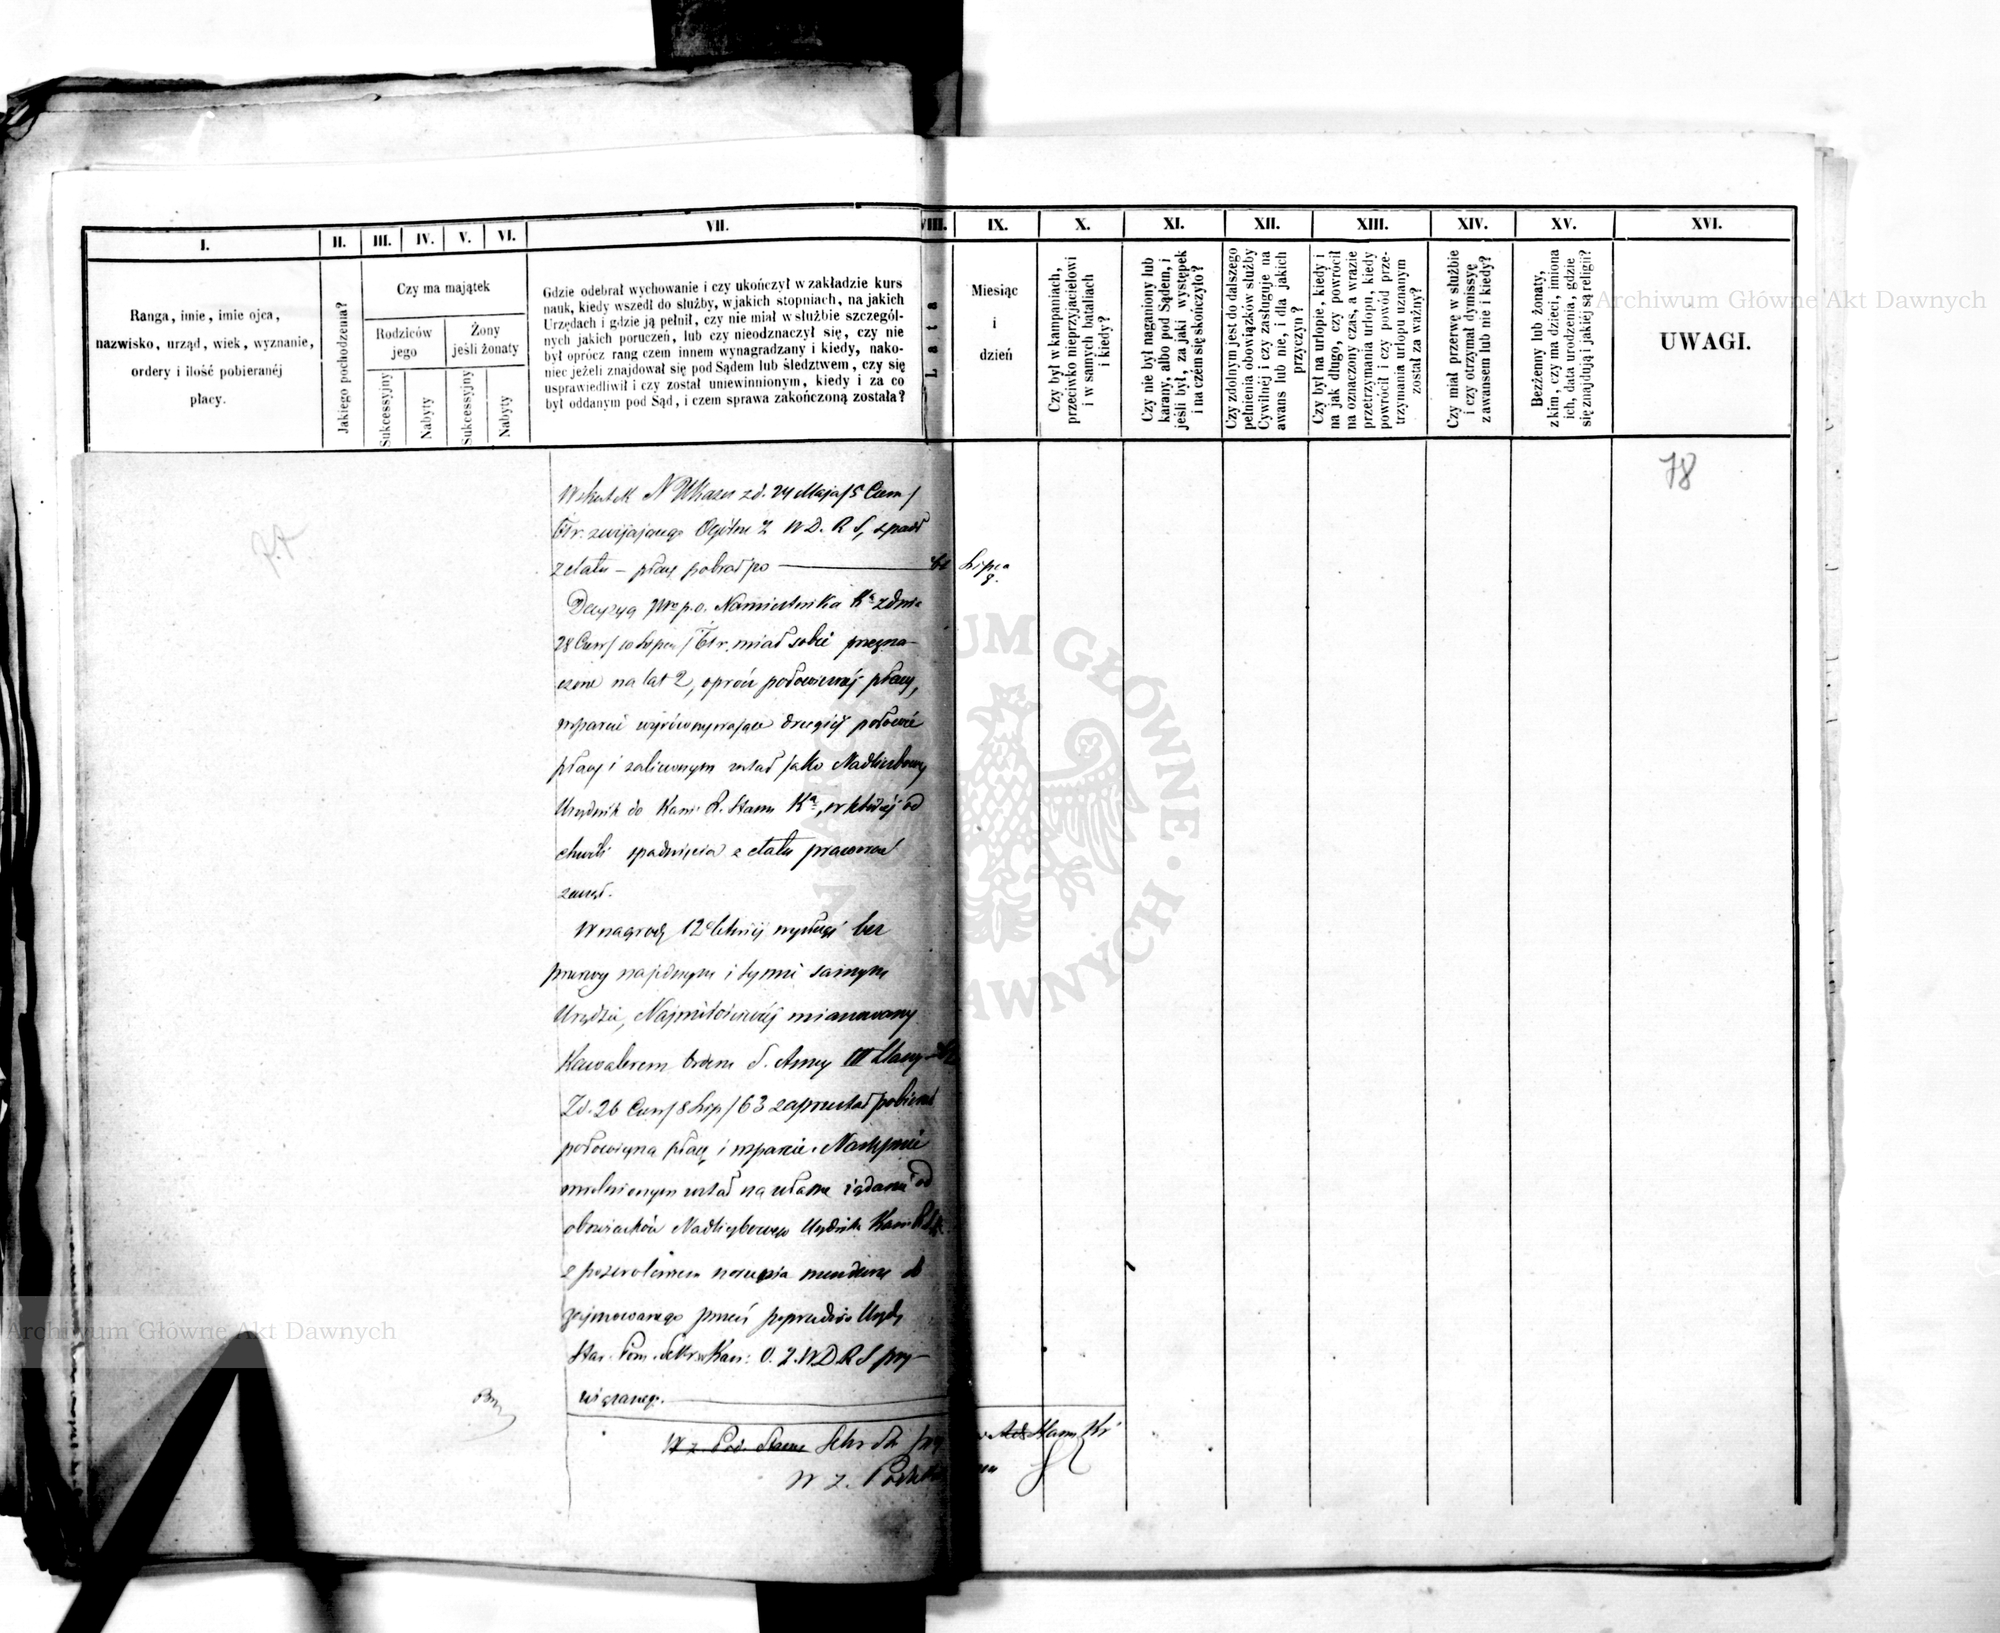 I.
II.
III.
IV.
V.
VI.
VII.
VIII.
IX.
X.
XI.
XII.
XIII.
XIV.
XV.
XVI.
Ranga, imie, imie ojca,
nazwisko, urząd, wiek, wyznanie,
ordery i ilość pobieranéj
płacy.
Jakiego pochodzenia?
Czy ma majątek
Rodziców
jego
Żony
jeśli żonaty
Sukcessyjny
Nabyty
Sukcessyjny
Nabyty
Gdzie odebrał wychowanie i czy ukończył w zakładzie kurs
nauk, kiedy wszedł do służby, w jakich stopniach, na jakich
Urzędach i gdzie ją pełnił, czy nie miał w służbie szczegól-
nych jakich poruczeń, lub czy nieodznaczył się, czy nie
był oprócz rang czem innem wynagradzany i kiedy, nako-
niec jeżeli znajdował się pod Sądem lub śledztwem, czy się
usprawiedliwił i czy został uniewinnionym, kiedy i za co
był oddanym pod Sąd, i czem sprawa zakończoną została?
Lata
Miesiąc
i
dzień
Czy był w kampaniach,
przeciwko nieprzyjacielowi
i w samych bataliach
i kiedy?
Czy nie był naganiony lub
karany, albo pod Sądem, i
jeśli był, za jaki występek
i na czém się skończyło?
Czy zdolnym jest do dalszego
pełnienia obowiązków służby
Cywilnéj i czy zasługuje na
awans lub nie, i dla jakich
przyczyn?
Czy był na urlopie, kiedy i
na jak długo, czy powrócił
na oznaczony czas, a wrazie
przetrzymania urlopu, kiedy
powrócił i czy powód prze-
trzymania urlopu uznanym
został za ważny?
Czy miał przerwę w służbie
i czy otrzymał dymissyę
z awansem lub nie i kiedy?
Bezżenny lub żonaty,
z kim, czy ma dzieci, imiona
ich, data urodzenia, gdzie
się znajdują i jakiéj są religii?
UWAGI.
78
Wskutek N Ukazu z d. 24 Maja/5 Czerw/
t/r. zwijającego Ogólne Z W D. R S, spadł
z etatu – płacę pobrał po
Lipca
8.
Decyzyą p.o. Namiestnika K. z dnia
28 Czerw/10 Lipca/ t/r. miał sobie przezna-
czone na lat 2, oprócz połowicznéj płacy,
wsparcie wyrównywające drugiéj połowie
płacy i zaliczonym został jako Nadliczbowy
Urzędnik do Kanc R. Stanu K, w któréj od
chwili spadnięcia z etatu pracować
zaczął.
W nagrodę 12 letniéj wysługi bez
przerwy na jednym i tymże samym
Urzędzie, Najmiłościwiéj mianowany
Kawalerem Orderu S. Anny III Klassy
Z d. 26 Czerw/8 Lip/63 zaprzestał pobierać
połowiczną płacę i wsparcie. Następnie
uwolnionym został na własne żądanie od
obowiązków Nadliczbowego Urzędnika Kanc
z pozwoleniem noszenia munduru do
zajmowanego przezeń poprzednio Urzędu
Star. Pom. Sekr. w Kanc: O. Z. W D R S przy-
wiązanego.
W z. Pod.
W z.
Archiwum Główne Akt Dawnych
Archiwum Główne Akt Dawnych
ARCHIWUM GŁÓWNE AKT DAWNYCH